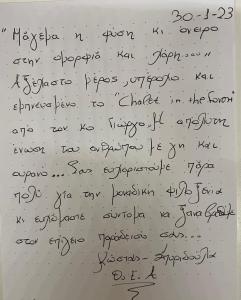 30-1-23
"Μάγεμα η φύση κι όνειρο
στην ομορφιά και χάρη..."
Αξέχαστο μέρος, υπέροχο και
εμπνευσμένο το "Chalet in the forest"
από τον κο Γιώργο. Η απόλυτη
ένωση του ανθρώπου με γη και
ουρανό... Σας ευχαριστούμε πάρα
πολύ για την μοναδική φιλοξενία
κι ευχόμαστε σύντομα να ξαναβρεθούμε
στον επίγειο παράδεισό σας...
Κώστας - Σπυριδούλα